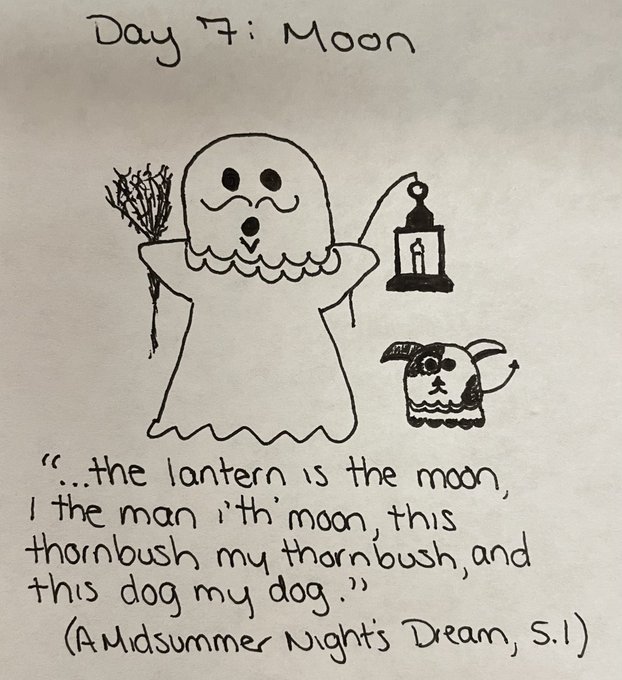 Day 7: Moon
"...the lantern is the moon,
I the man i'th' moon, this
thornbush my thornbush, and
this dog my dog."
(A Midsummer Night's Dream, 5.1)